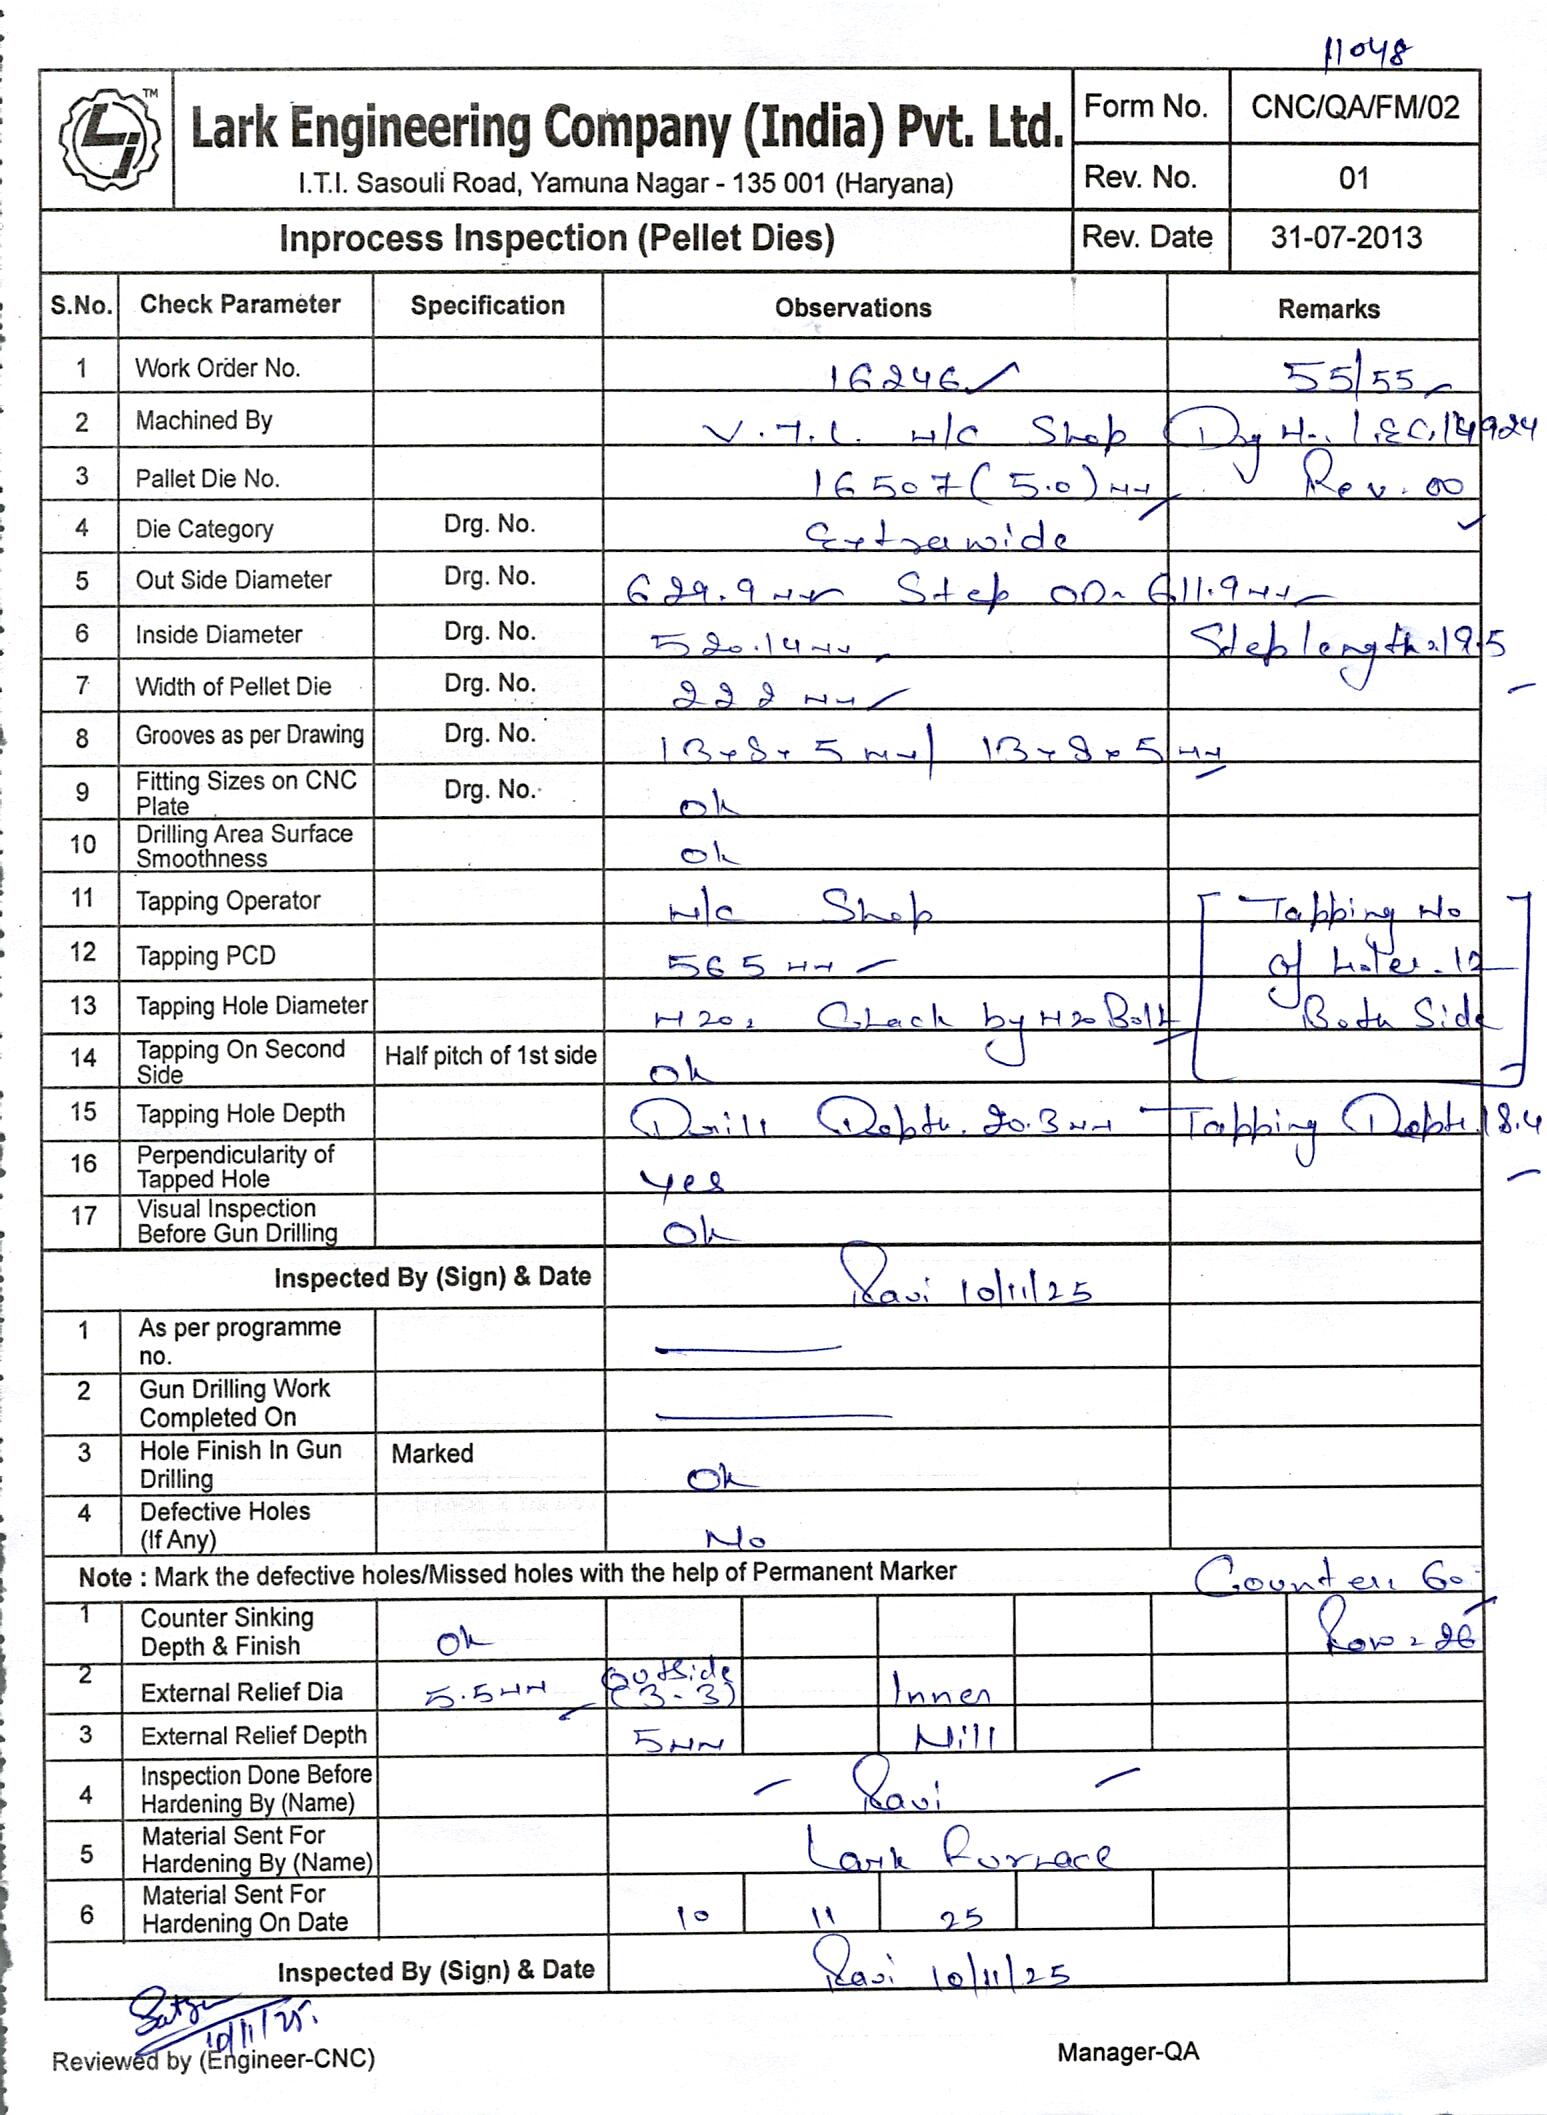 11048
TM
Lark Engineering Company (India) Pvt. Ltd.
I.T.I. Sasouli Road, Yamuna Nagar - 135 001 (Haryana)
Form No. CNC/QA/FM/02
Rev. No. 01
Inprocess Inspection (Pellet Dies)
Rev. Date 31-07-2013
S.No. Check Parameter Specification Observations Remarks
1 Work Order No. 16246 55/55
2 Machined By V.T.L. M/C Shop Drg No. LEC/14924
3 Pallet Die No. 16507 (5.0) mm Rev. 00
4 Die Category Drg. No. Extrawide
5 Out Side Diameter Drg. No. 629.9mm Step OD- 611.9mm
6 Inside Diameter Drg. No. 520.14mm Step length = 19.5
7 Width of Pellet Die Drg. No. 222 mm
8 Grooves as per Drawing Drg. No. 13x8x5 mm / 13x8x5 mm
9 Fitting Sizes on CNC Plate Drg. No. Ok
10 Drilling Area Surface Smoothness Ok
11 Tapping Operator M/C Shop Tapping No
12 Tapping PCD 565 mm of Holes - 12
13 Tapping Hole Diameter M20, Check by M20 Bolt Both Side
14 Tapping On Second Side Half pitch of 1st side Ok
15 Tapping Hole Depth Drill Depth. 20.3mm Tapping Depth. 18.4
16 Perpendicularity of Tapped Hole Yes
17 Visual Inspection Before Gun Drilling Ok
Inspected By (Sign) & Date Ravi 10/11/25
1 As per programme no.
2 Gun Drilling Work Completed On
3 Hole Finish In Gun Drilling Marked Ok
4 Defective Holes (If Any) No
Note : Mark the defective holes/Missed holes with the help of Permanent Marker Counter. 60
1 Counter Sinking Depth & Finish Ok Row = 26
2 External Relief Dia 5.5mm Outside (3-3) Inner
3 External Relief Depth 5mm Nill
4 Inspection Done Before Hardening By (Name) Ravi
5 Material Sent For Hardening By (Name) Lark Furnace
6 Material Sent For Hardening On Date 10 11 25
Inspected By (Sign) & Date Ravi 10/11/25
10/11/25.
Reviewed by (Engineer-CNC) Manager-QA